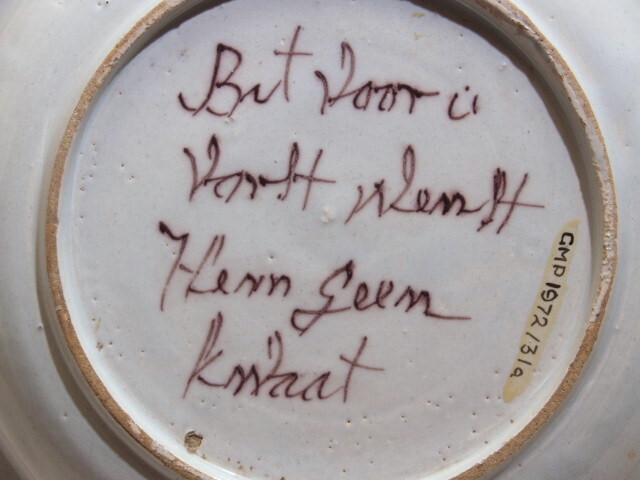 Bit voor u
Vorst Wenst
Hem geen
kwaat
GMP1972/31a